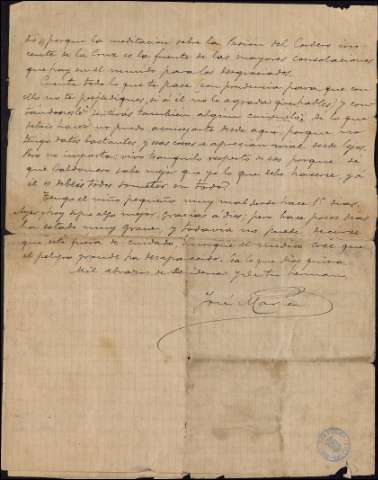 dó, y porque la meditación sobre la Pasión del Cordero ino-
cente de la Cruz es la fuente de las mayores consolaciones
que hay en el mundo para los desgraciados.
Cuenta todo lo que te pase, con prudencia para que con
ello no te perjudiques, si a él no le agradan
también alguna de lo que
debéis hacer no puedo aconsejarte desde aquí, porque no
tengo datos bastantes, y esas cosas se aprecian mal desde lejos.
Pero no importa; vivo tranquilo respecto de eso porque sé
que Baldomero sabe mejor que yo lo que debe hacerse, y á
él os debéis todos someter en todo.
Tengo el niño pequeño muy malo desde hace 15 días.
Ayer y hoy sigue algo mejor, gracias a Dios; pero hace pocos días
ha estado muy grave, y todavía no puede decirse
que está fuera de cuidado, aunque el médico cree que
el peligro grande ha desaparecido. Sea lo que Dios quiera.
Mil abrazos de y de tu hermano
José